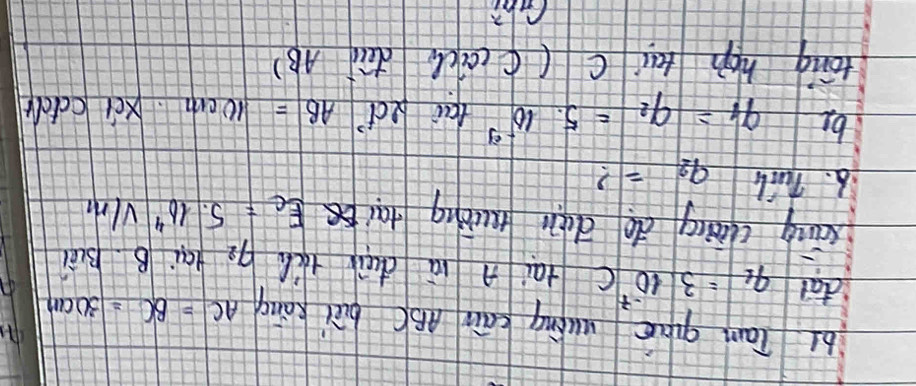 b1. Tam giác vuông cân ABC biết rằng AC = BC = 30cm
đặt q1 = 3.10⁻⁷ C tại A và điện tích q2 tại B. Biết
rằng cường độ điện trường tại Ec = 5.10⁴ V/m
b. Tính q2 = ?
b2 q1 = q2 = 5.10⁻⁹ tại AB = 10cm. Xét cđđt
tổng hợp tại C (C cách đều AB)
Giải